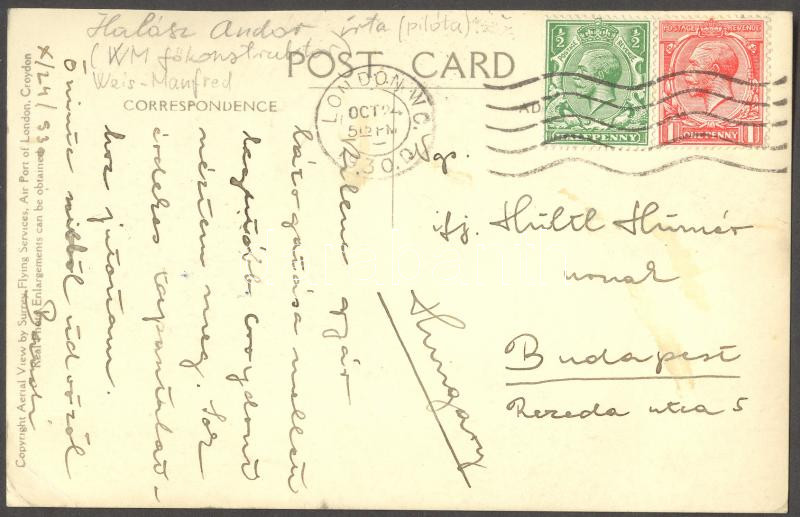 Halász Andor írta (pilóta)
(WM főkonstruktor
Weis-Manfred
POST CARD
CORRESPONDENCE
LONDON. W.C.
OCT 24
5 PM
½ ½
HALFPENNY
POSTAGE REVENUE
1 ONE PENNY 1
gyár
látogatása mellett
croydont
néztem meg. Sok
érdekes tapasztalat-
hoz jutottam.
üdvözöl
X/24/930
Ngs.
ifj. Hültl Hümér
úrnak
Budapest
Rezeda utca 5
Hungary
Copyright Aerial View by Surrey Flying Services, Air Port of London, Croydon
Real Photo Enlargements can be obtained